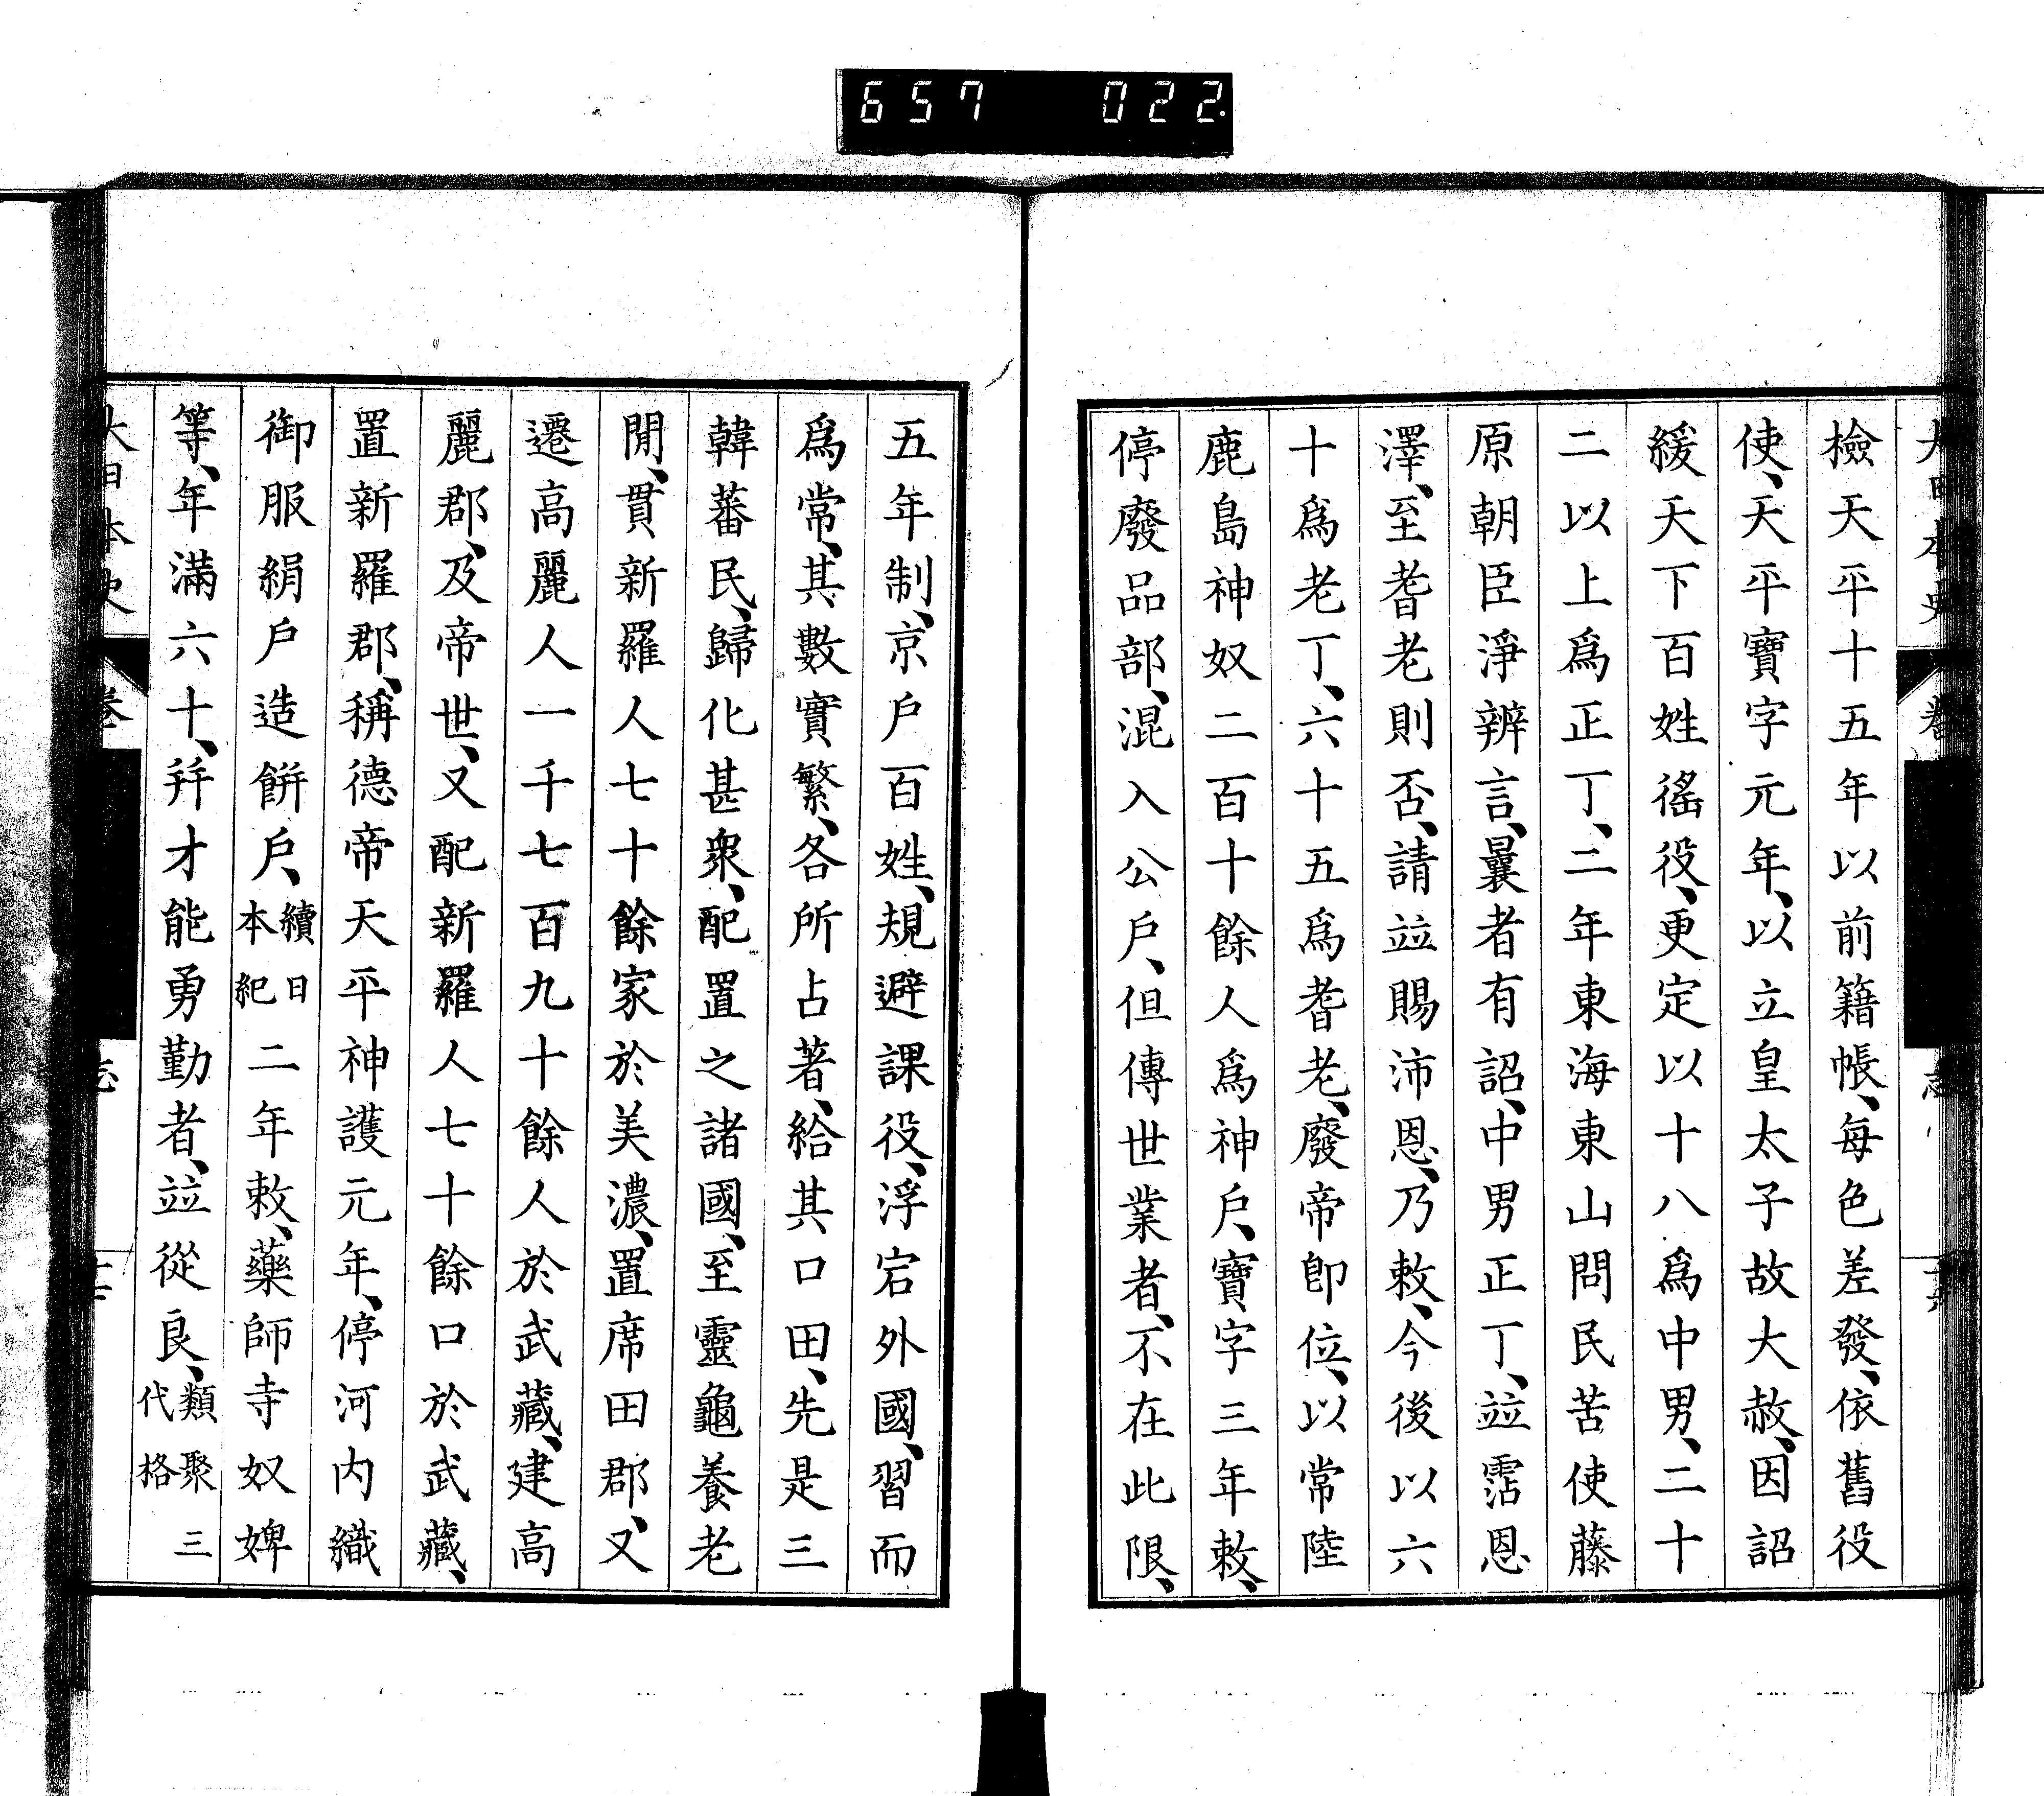 657 022
檢天平十五年以前籍帳、每色差發、依舊役
使、天平寶字元年、以立皇太子故大赦、因詔
緩天下百姓徭役、更定以十八爲中男、二十
二以上爲正丁、二年東海東山問民苦使藤
原朝臣淨辨言、曩者有詔、中男正丁、竝霑恩
澤、至耆老則否、請竝賜沛恩、乃敕、今後以六
十爲老丁、六十五爲耆老、廢帝卽位、以常陸
鹿島神奴二百十餘人爲神戶、寶字三年敕、
停廢品部、混入公戶、但傳世業者、不在此限、
五年制、京戶百姓、規避課役、浮宕外國、習而
爲常、其數實繁、各所占著、給其口田、先是三
韓蕃民、歸化甚衆、配置之諸國、至靈龜養老
閒、貫新羅人七十餘家於美濃、置席田郡、又
遷高麗人一千七百九十餘人於武藏、建高
麗郡、及帝世、又配新羅人七十餘口於武藏、
置新羅郡、稱德帝天平神護元年、停河內織
御服絹戶造餠戶、續日本紀二年敕、藥師寺奴婢
等、年滿六十、幷才能勇勤者、竝從良、類聚三代格
大日本史 卷 志